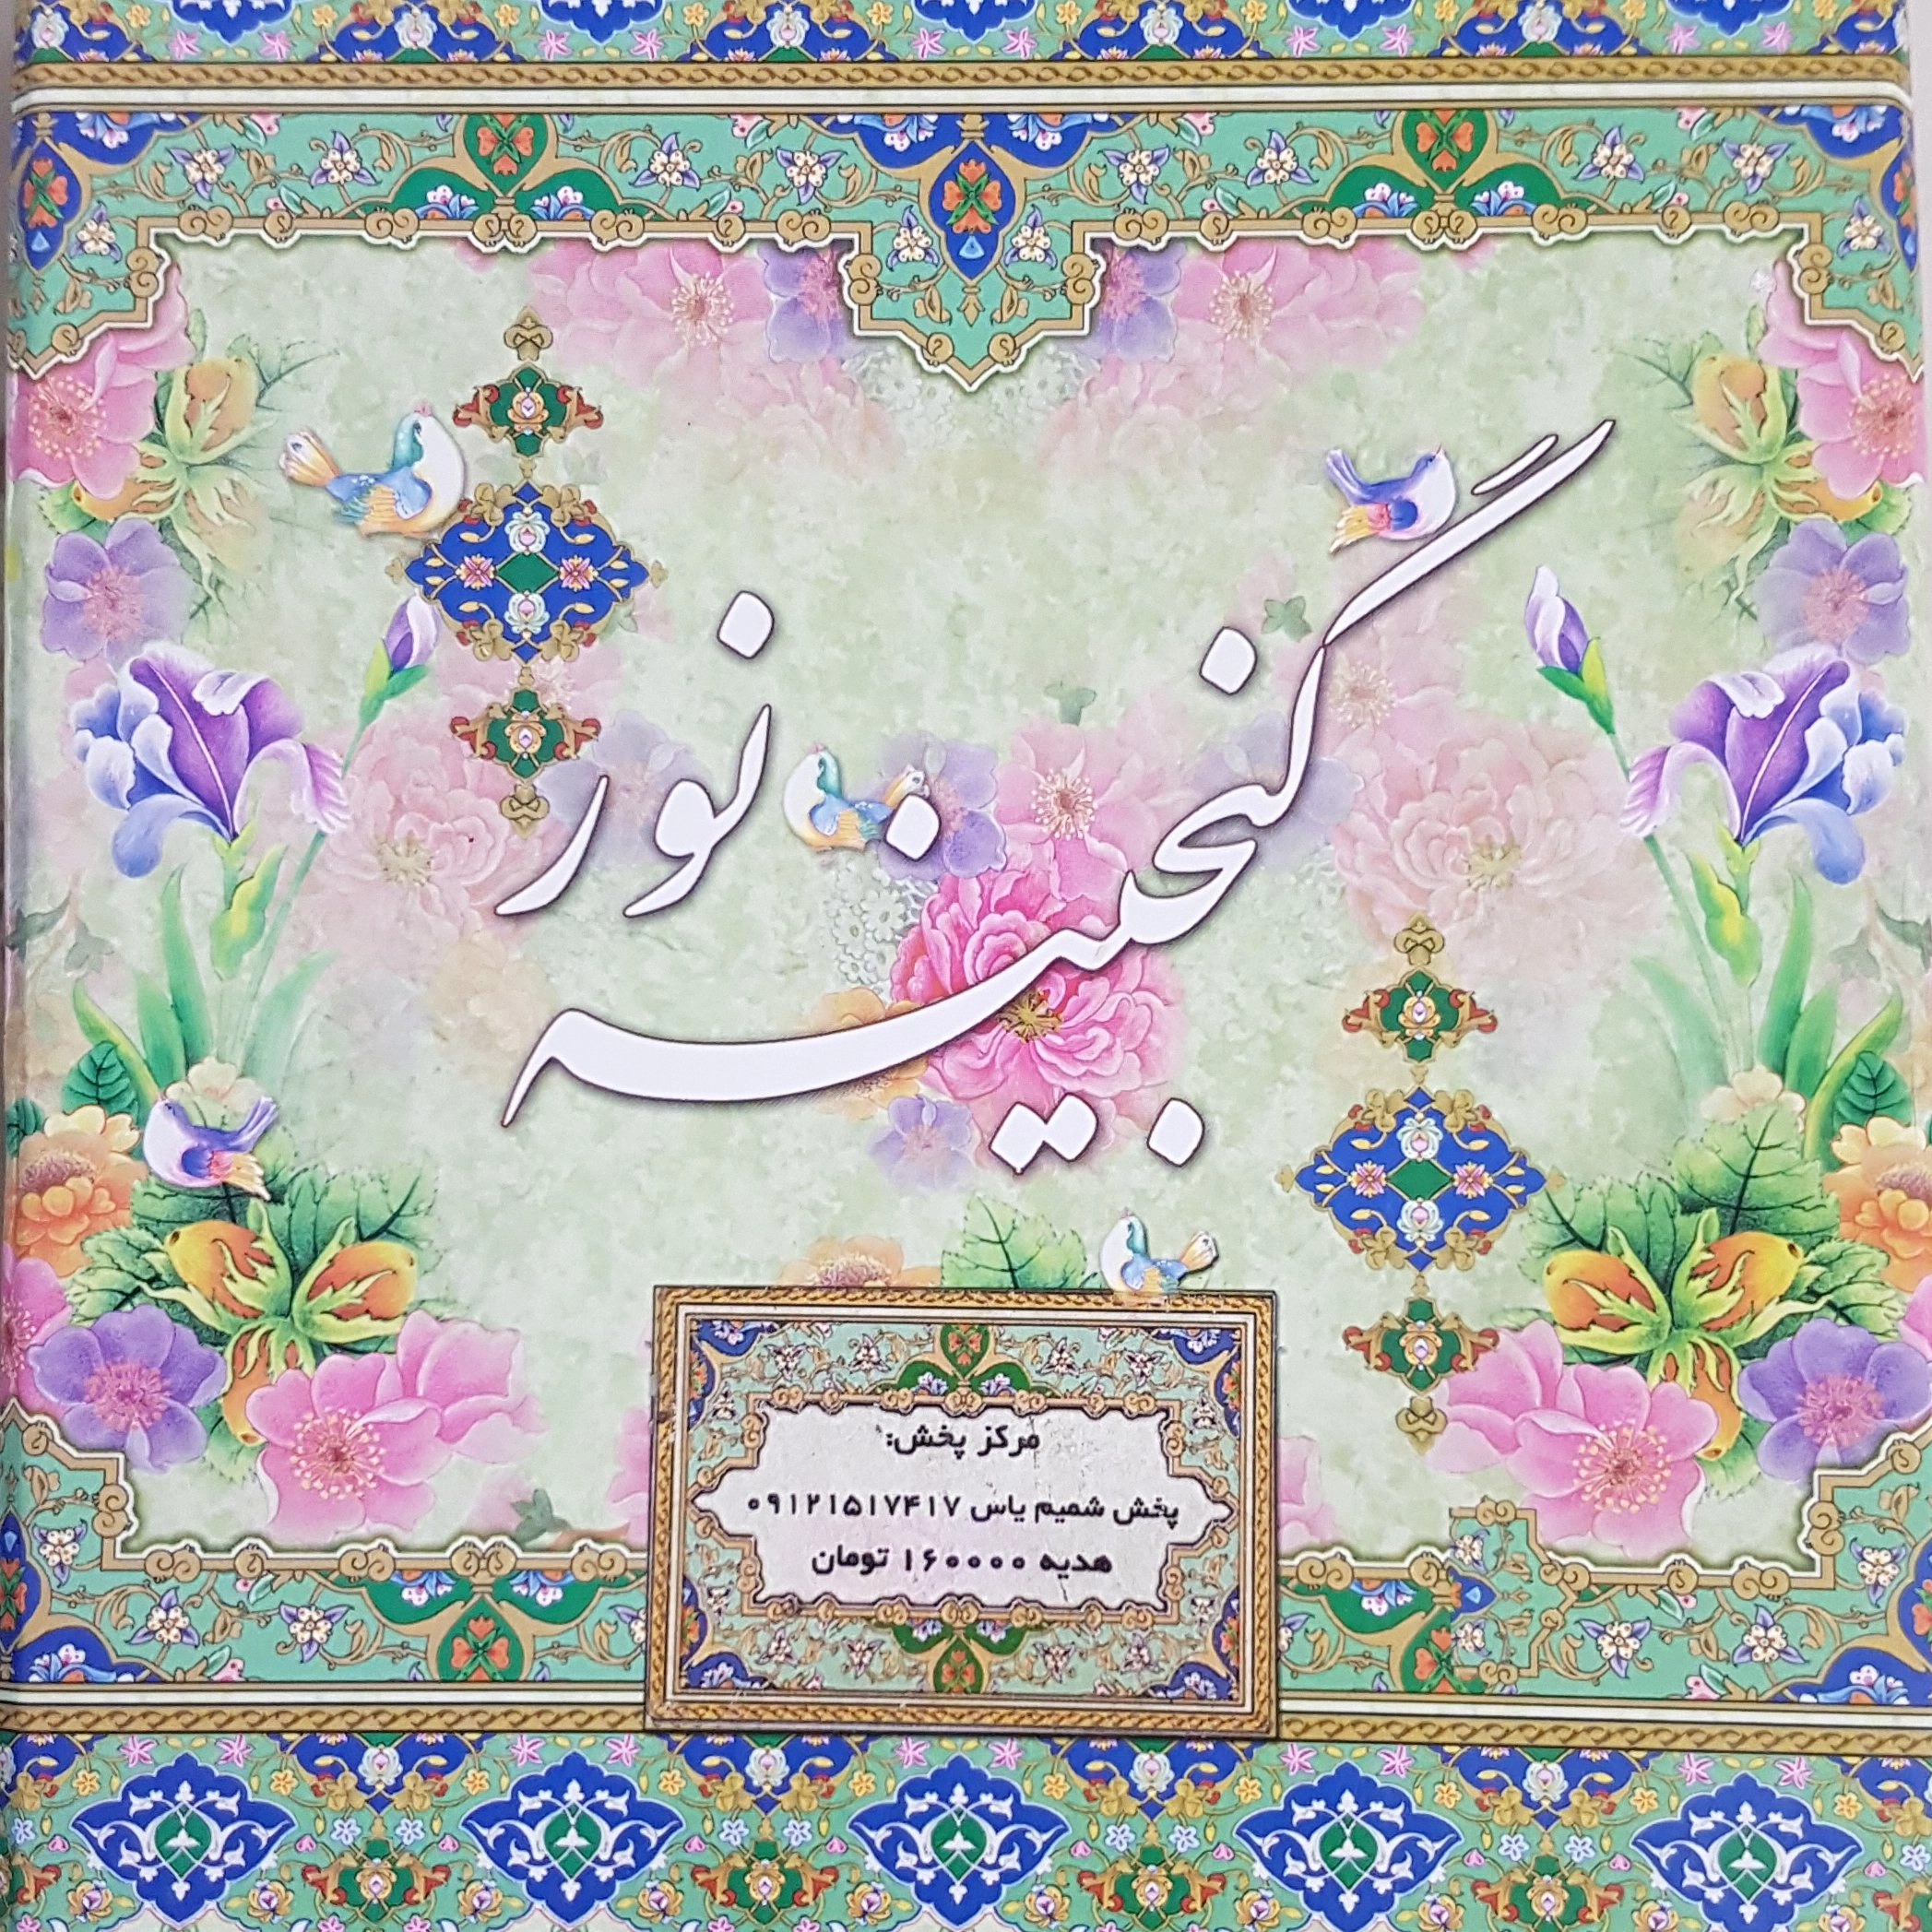 گنجینه نور
مرکز پخش:
پخش شمیم یاس ۰۹۱۲۱۵۱۷۴۱۷
هدیه ۱۶۰۰۰۰ تومان